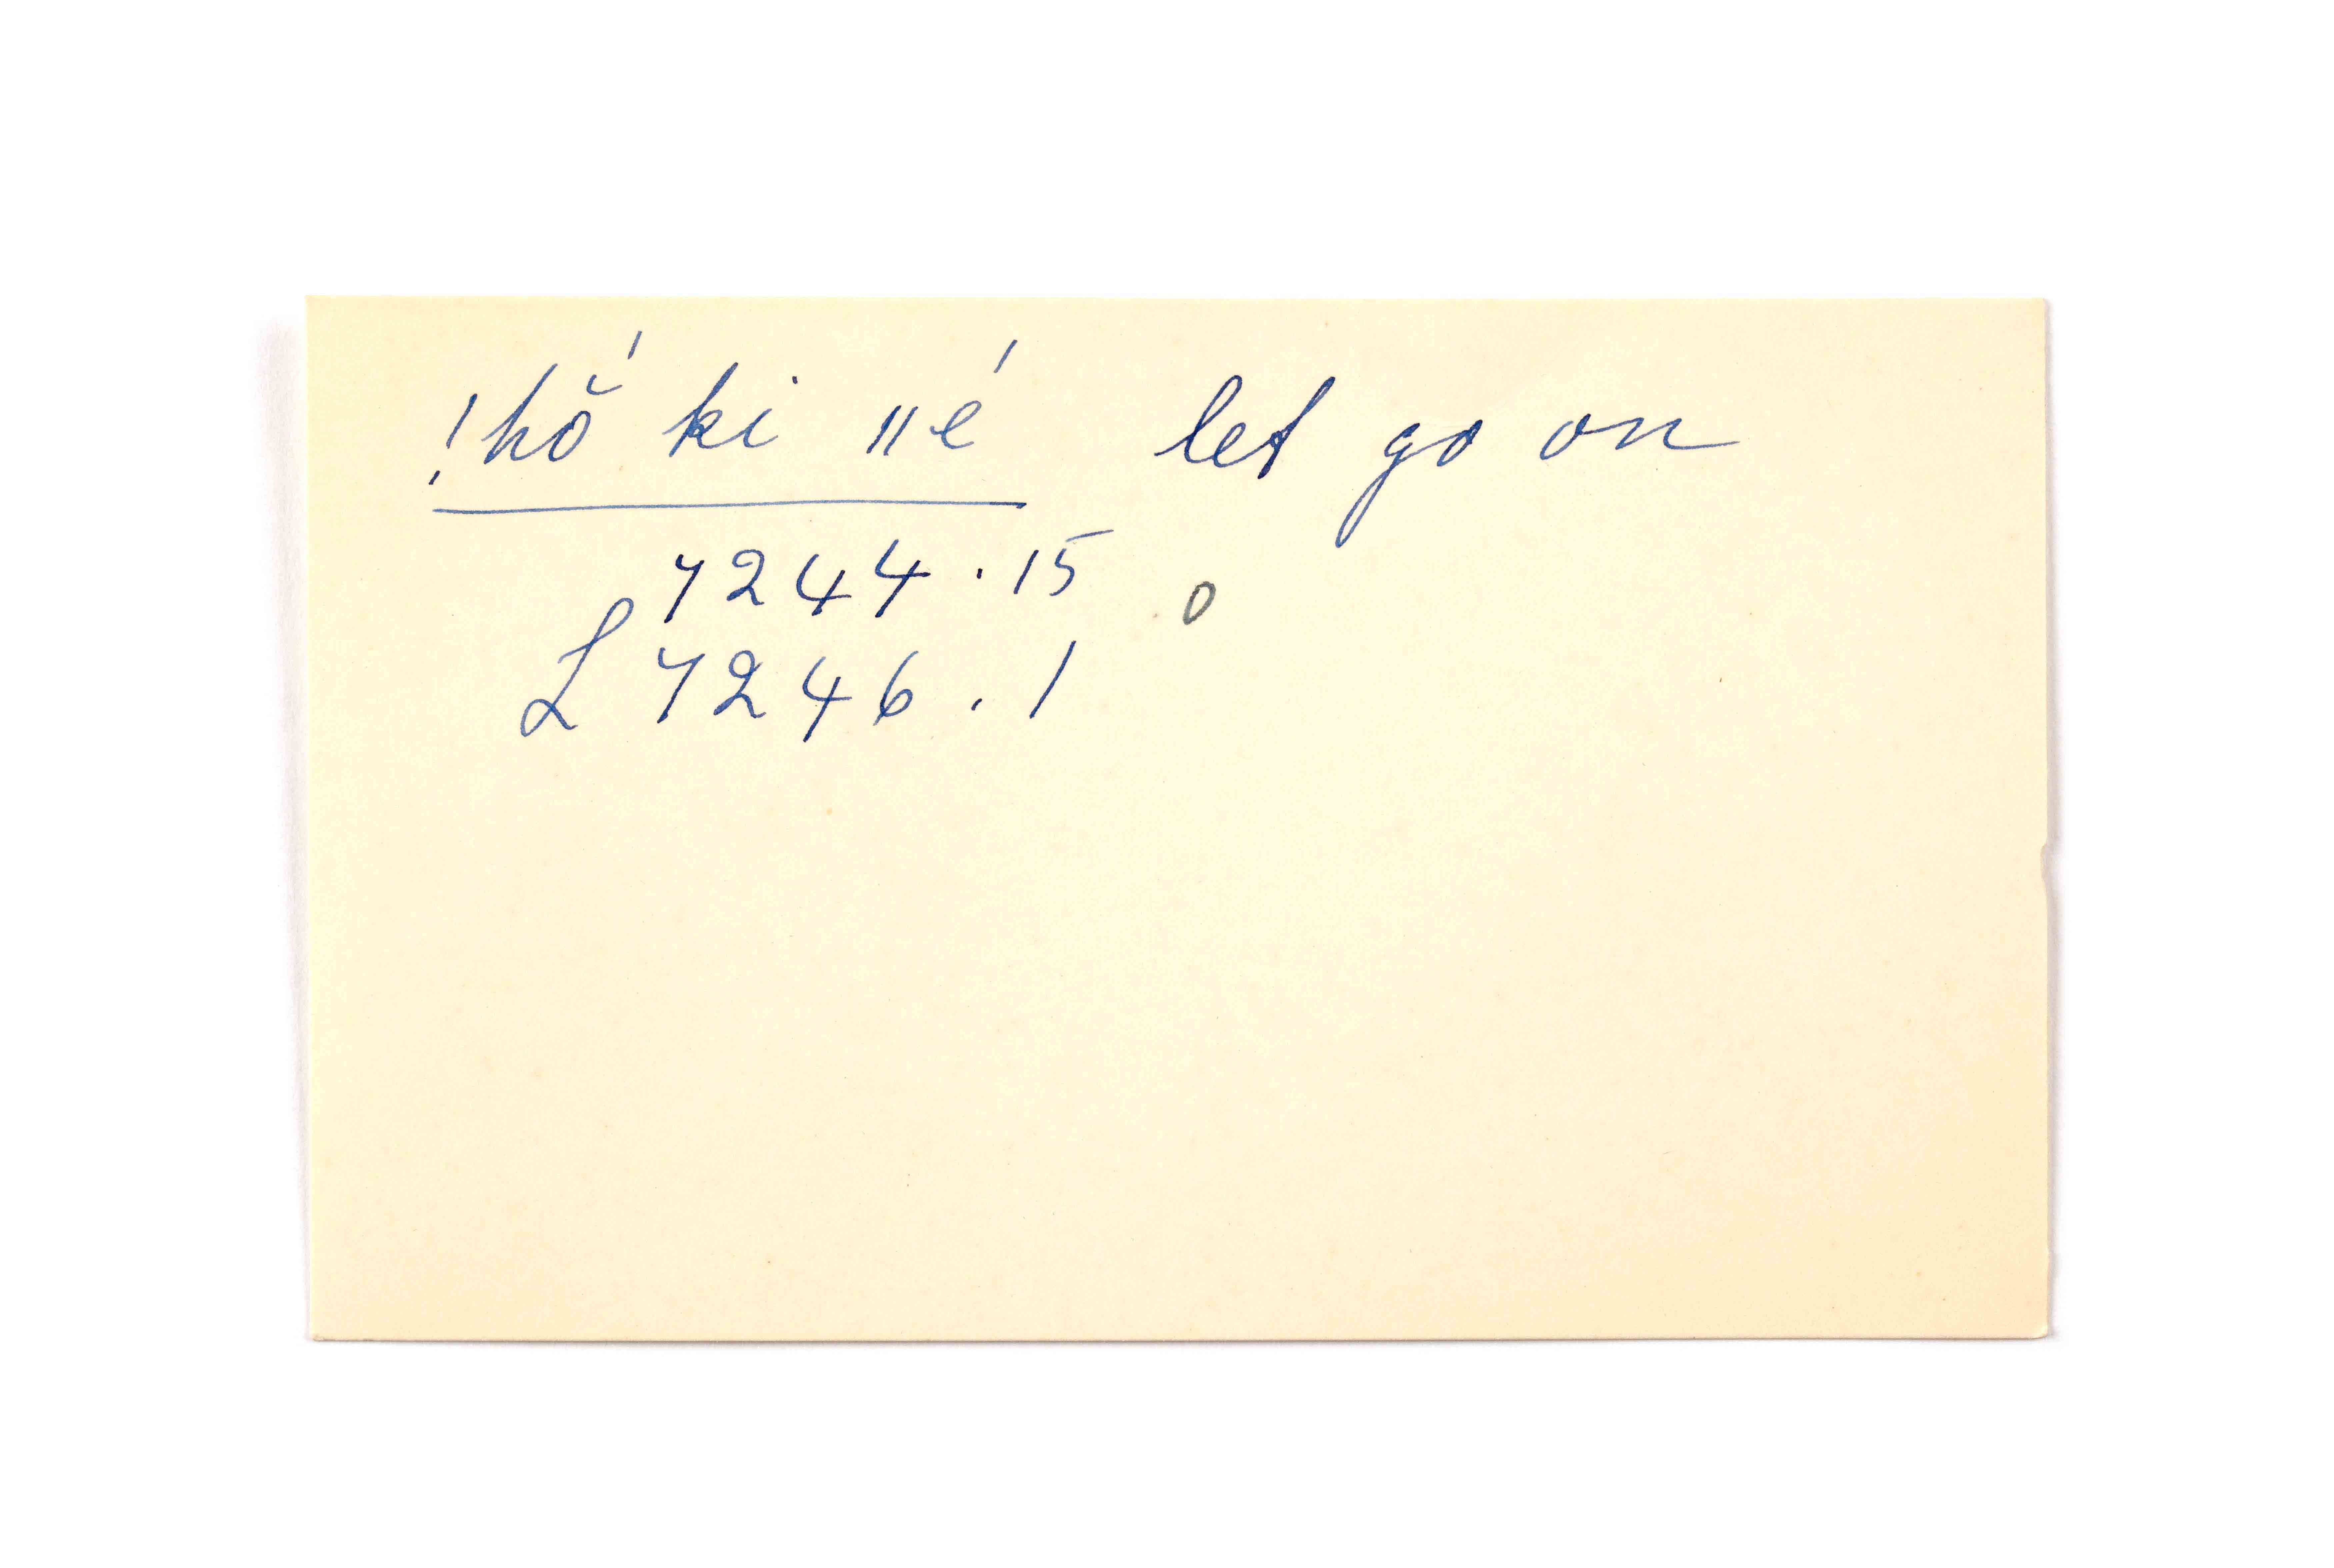 !hŏ́ ki ǁé let go on
7244.15 0
L 7246.1